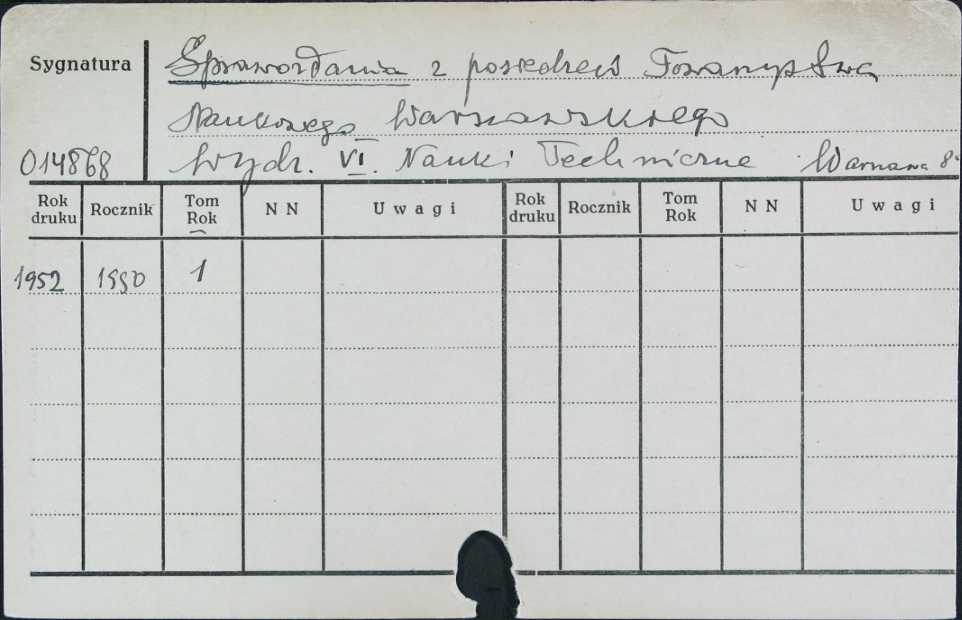 Sygnatura
Sprawozdania z posiedzeń Towarzystwa
Naukowego Warszawskiego
014868
Wydz. VI. Nauki Techniczne Warszawa 8°
Rok druku Rocznik Tom Rok N N Uwagi Rok druku Rocznik Tom Rok N N Uwagi
1952 1950 1